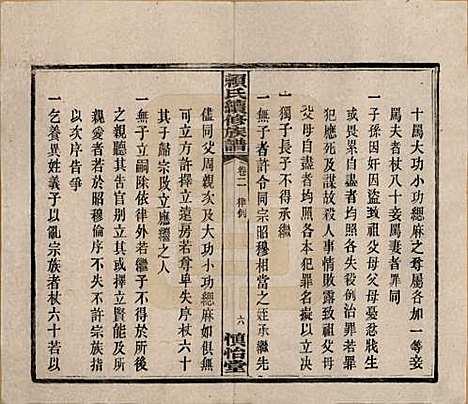 十罵大功小功緦麻之尊屬各加一等妾
罵夫者杖八十妾罵妻者罪同
一子孫因奸因盜致祖父母父母憂忿戕生
或畏累自盡者均照各失役例治罪若罪
犯應死及謀故殺人事情敗露致祖父母
父母自盡者均照各本犯罪名擬以立決
一獨子長子不得承繼
一無子者許令同宗昭穆相當之姪承繼先
賴氏續修族譜
卷二
律例
六
慎怡堂
儘同父周親次及大功小功緦麻如俱無
可立方許擇立遠房若尊卑失序杖六十
其子歸宗改立應繼之人
一無子立嗣除依律外若繼子不得於所後
之親聽其告官別立其或擇立賢能及所
親愛者若於昭穆倫序不失不許宗族指
以次序告爭
一乞養異姓義子以亂宗族者杖六十若以